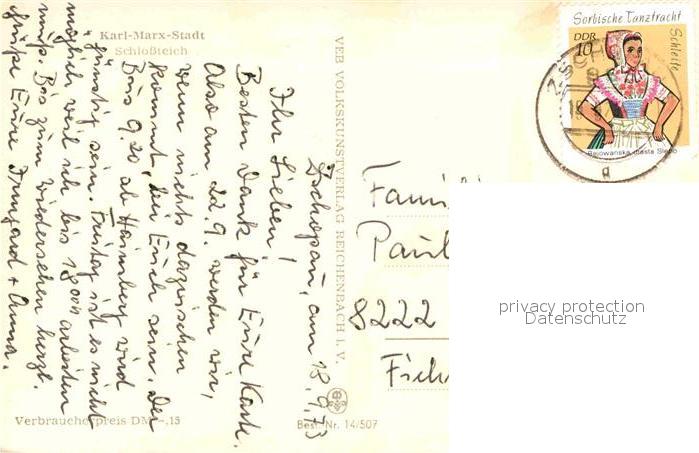 Karl-Marx-Stadt
Schloßteich
Zschopau, am 18.9.73
Ihr Lieben!
Besten Dank für Eure Karte.
Also am 22.9. werden wir,
wenn nichts dazwischen
kommt, bei Euch sein. Der
Bus 9.20 ab Hainsberg wird
günstig sein. Freitag ist es nicht
möglich, weil ich bis 18 00h arbeiten
muß. Bis zum Wiedersehen herzl.
Grüße Eure Irmgard + Anna.
Verbraucherpreis DM -,15
VEB VOLKSKUNSTVERLAG REICHENBACH I. V.
Best. Nr. 14/507
Sorbische Tanztracht
DDR
10
Schleife
ZSCH
a
Fami
Paul
8222
privacy protection
Datenschutz